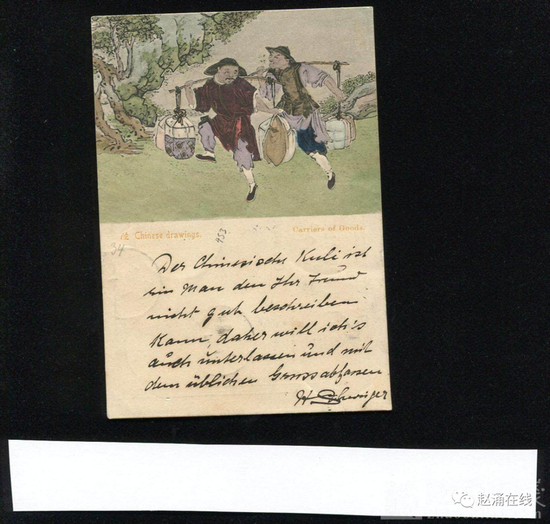 Chinese drawings.
Carriers of Goods.
34
953
Der Chinesische Kuli ist
ein Man den Ihr Freund
nicht gut beschreiben
kann, daher will ich's
auch unterlassen und mit
dem üblichen Gruss abfassen
H
赵涌在线